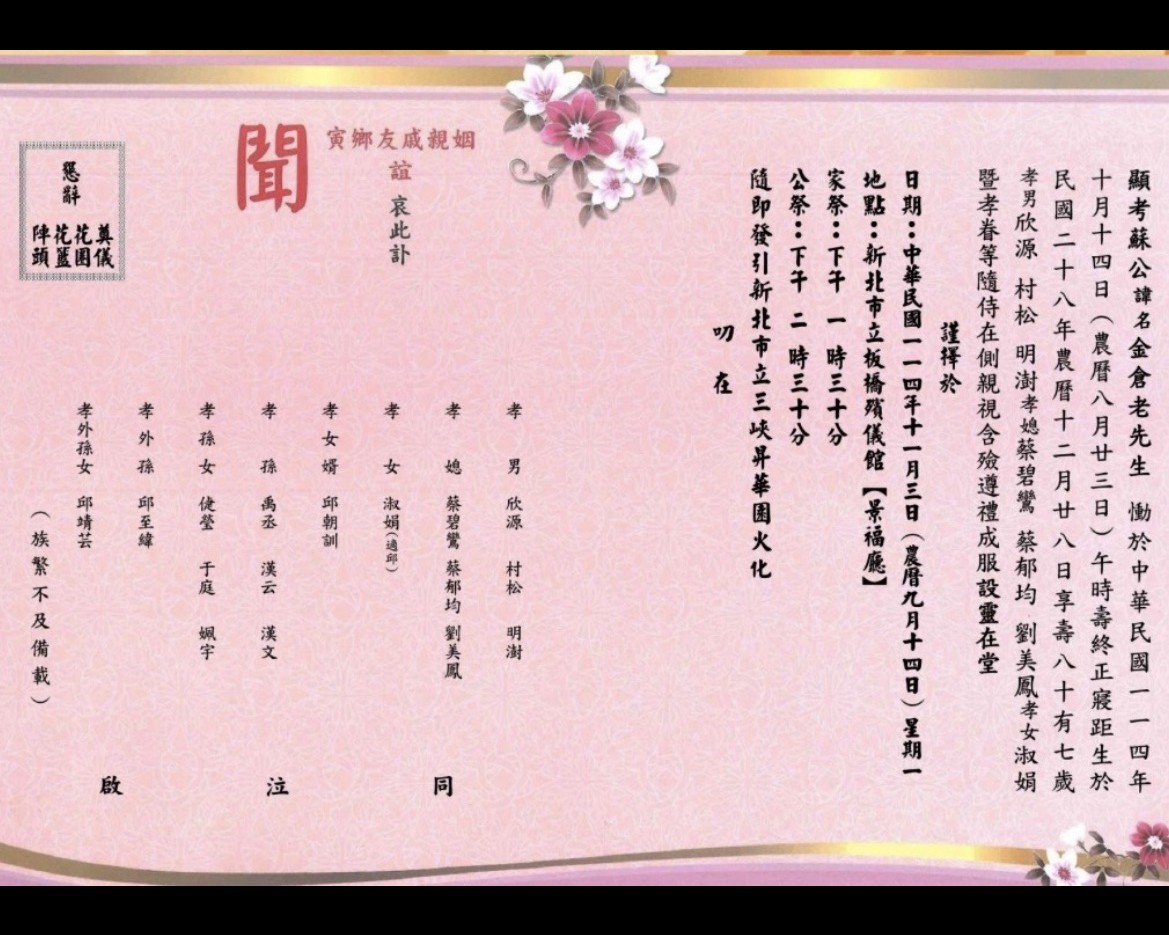 顯考蘇公諱名金倉老先生 慟於中華民國一一四年
十月十四日（農曆八月廿三日）午時壽終正寢距生於
民國二十八年農曆十二月廿八日享壽八十有七歲
孝男欣源 村松 明澍孝媳蔡碧鸞 蔡郁均 劉美鳳孝女淑娟
暨孝眷等隨侍在側親視含殮遵禮成服設靈在堂
謹擇於
日期：中華民國一一四年十一月三日（農曆九月十四日）星期一
地點：新北市立板橋殯儀館【景福廳】
家祭：下午 一 時三十分
公祭：下午 二 時三十分
隨即發引新北市立三峽昇華園火化
叨 在
姻親戚友鄉寅
誼 哀此訃
聞
孝 男 欣源 村松 明澍
孝 媳 蔡碧鸞 蔡郁均 劉美鳳
孝 女 淑娟（適邱）
孝 女 婿 邱朝訓
孝 孫 禹丞 漢云 漢文
孝 孫 女 倢瑩 于庭 姵宇
孝 外 孫 邱至緯
孝外孫女 邱靖芸
（族繁不及備載）
同 泣 啟
懇辭
奠儀
花圈
花籃
陣頭